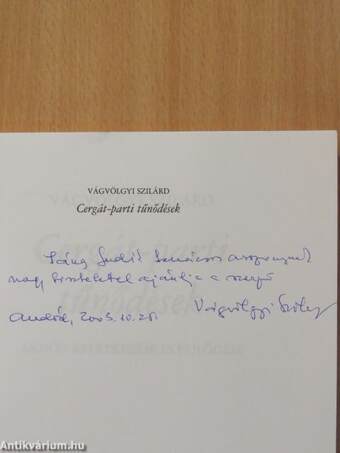 VÁGVÖLGYI SZILÁRD
Cergát-parti tűnődések
Judit asszonynak
nagy tisztelettel ajánlja a szerző
2005. 10. 25. Vágvölgyi Szilárd
Antikvárium.hu